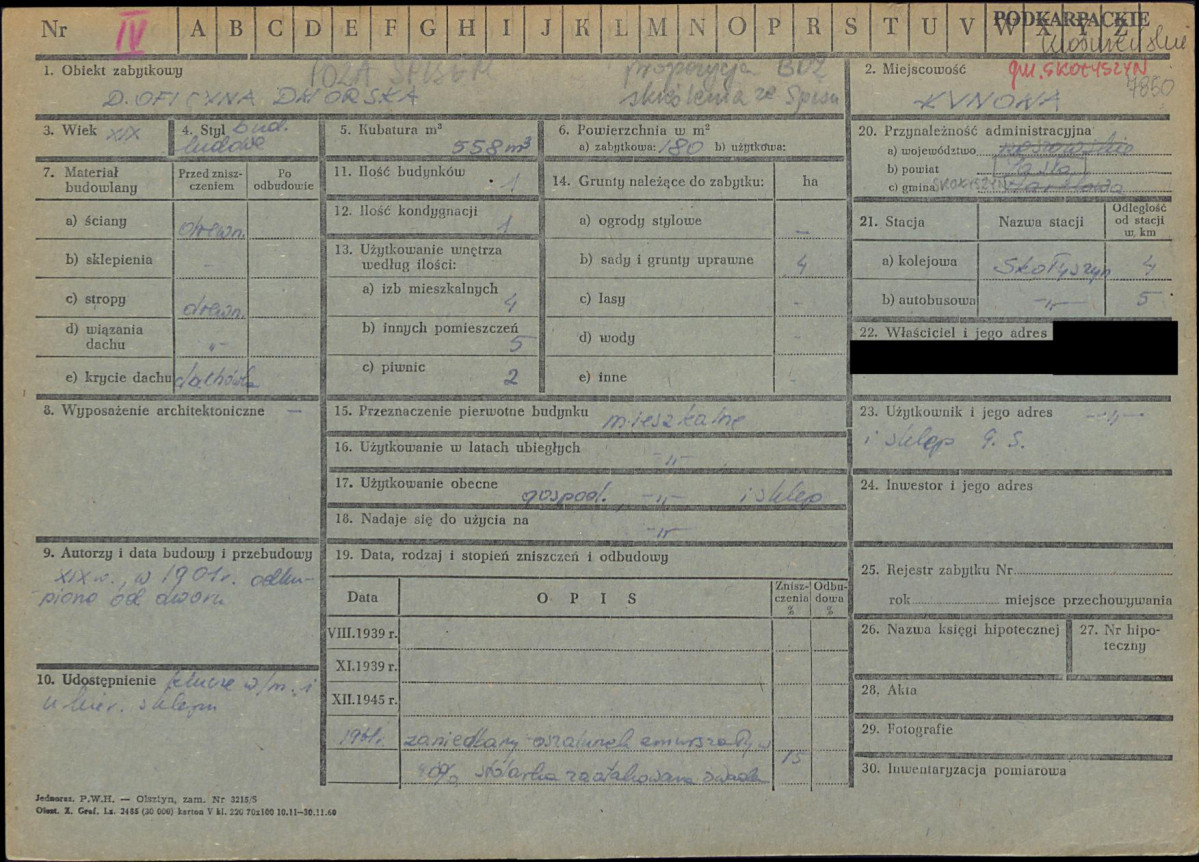 Nr IV A B C D E F G H I J K L Ł M N O P R S T U V W X Y Z
PODKARPACKIE
1. Obiekt zabytkowy
POZA SPISEM
propozycja BDZ
skreślenia ze Spisu
D. OFICYNA DWORSKA
2. Miejscowość
gm. SKOŁYSZYN
7850
KUNOWA
3. Wiek XIX
4. Styl bud. ludowe
5. Kubatura m³
558 m³
6. Powierzchnia w m²
a) zabytkowa: 180 b) użytkowa:
7. Materiał budowlany
Przed zniszczeniem
Po odbudowie
a) ściany drewn.
b) sklepienia -
c) stropy drewn.
d) wiązania dachu -„-
e) krycie dachu dachówka
8. Wyposażenie architektoniczne —
9. Autorzy i data budowy i przebudowy
XIX w., w 1901 r. odku-
piono od dworu
10. Udostępnienie klucze w/m. i
u kier. sklepu
11. Ilość budynków 1
12. Ilość kondygnacji 1
13. Użytkowanie wnętrza według ilości:
a) izb mieszkalnych 4
b) innych pomieszczeń 5
c) piwnic 2
14. Grunty należące do zabytku: ha
a) ogrody stylowe -
b) sady i grunty uprawne 4
c) lasy -
d) wody -
e) inne -
15. Przeznaczenie pierwotne budynku mieszkalne
16. Użytkowanie w latach ubiegłych -„-
17. Użytkowanie obecne gospod. -„- i sklep
18. Nadaje się do użycia na -„-
19. Data, rodzaj i stopień zniszczeń i odbudowy
Data OPIS Zniszczenia % Odbudowa %
VIII.1939 r.
XI.1939 r.
XII.1945 r.
1961r. zaniedbany oszalunek zmurszały w 15
40% stolarka zaatakowana
20. Przynależność administracyjna
a) województwo rzeszowskie
b) powiat Jasło
c) gmina SKOŁYSZYN Harklowa
21. Stacja Nazwa stacji Odległość od stacji w. km
a) kolejowa Skołyszyn 4
b) autobusowa -„- 5
22. Właściciel i jego adres
23. Użytkownik i jego adres -„-
i sklep G. S.
24. Inwestor i jego adres
25. Rejestr zabytku Nr
rok miejsce przechowywania
26. Nazwa księgi hipotecznej
27. Nr hipo-
teczny
28. Akta
29. Fotografie
30. Inwentaryzacja pomiarowa
Jednoraz. P.W.H. — Olsztyn, zam. Nr 3215/S
Olszt. Z. Graf. Lz. 2485 (30 000) karton V kl. 220 70x100 10.11—30.11.60